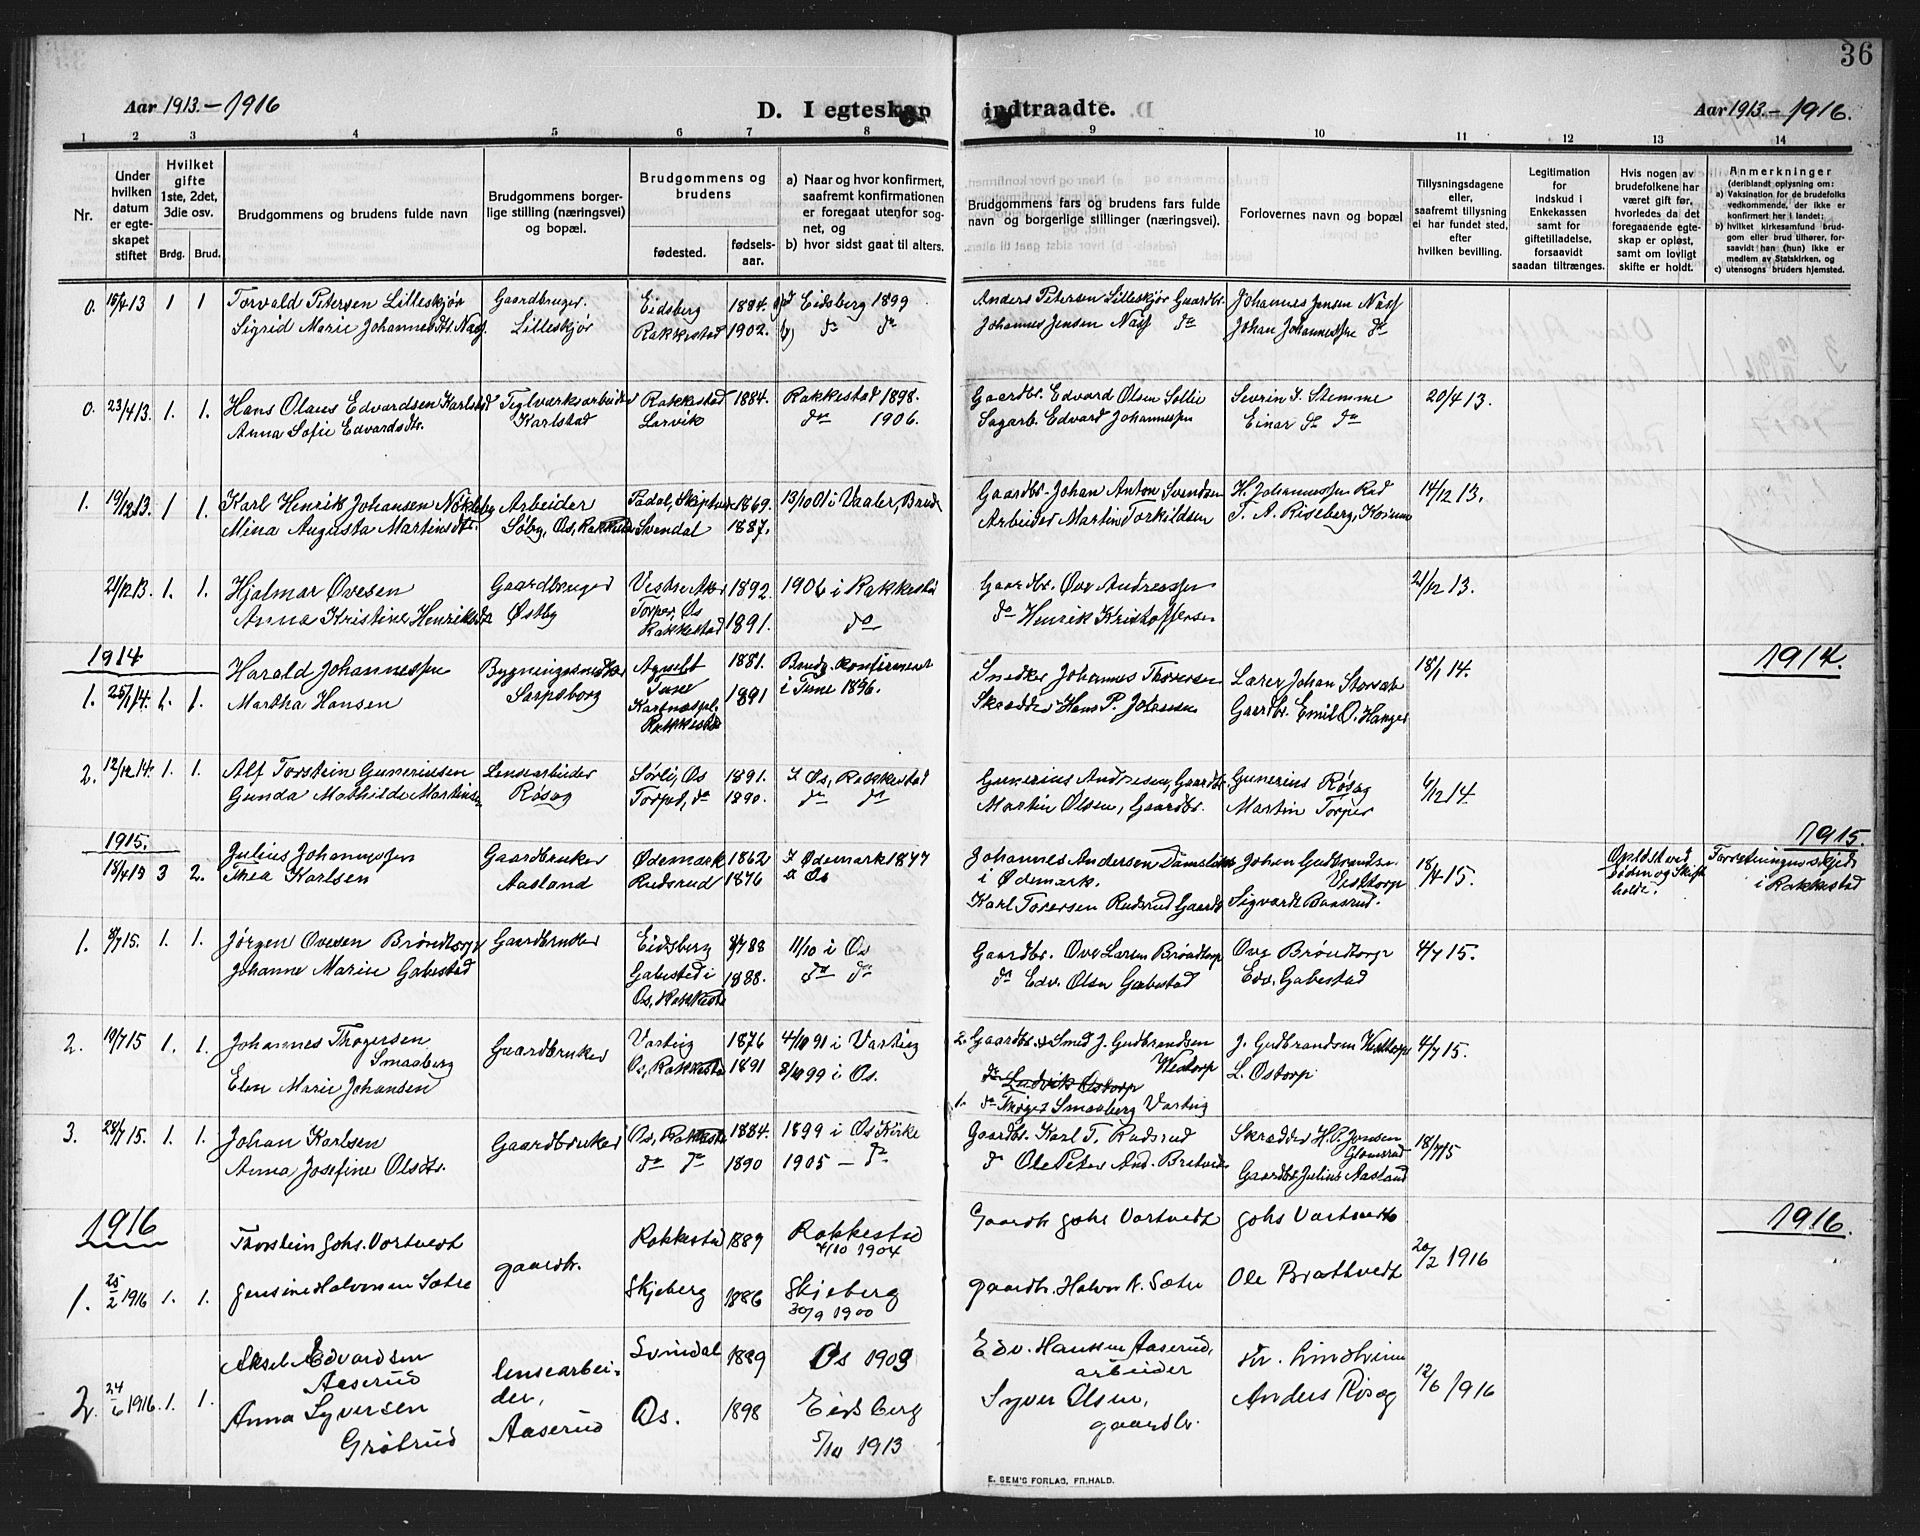 36
Aar 1913.-1916
D. I egteskap indtraadte.
Aar 1913.-1916.
1 2 3 4 5 6 7 8 9 10 11 12 13 14
Nr.
Under hvilken datum er egteskapet stiftet
Hvilket gifte 1ste, 2det, 3die osv.
Brdg. Brud.
Brudgommens og brudens fulde navn
Brudgommens borgerlige stilling (næringsvei) og bopæl.
Brudgommens og brudens
fødested.
fødselsaar.
a) Naar og hvor konfirmert, saafremt konfirmationen er foregaat utenfor sognet, og
b) hvor sidst gaat til alters.
Brudgommens fars og brudens fars fulde navn og borgerlige stillinger (næringsvei).
Forlovernes navn og bopæl
Tillysningsdagene eller, saafremt tillysning ei har fundet sted, efter hvilken bevilling.
Legitimation for indskud i Enkekassen samt for giftetilladelse, forsaavidt saadan tiltrænges.
Hvis nogen av brudefolkene har været gift før, hvorledes da det foregaaende egteskap er opløst, samt om lovligt skifte er holdt.
Anmerkninger
(deriblandt oplysning om:
a) Vaksination for de brudefolks vedkommende, der ikke er konfirmert her i landet;
b) hvilket kirkesamfund brudgom eller brud tilhører, forsaavidt han (hun) ikke er medlem av Statskirken, og
c) utensogns bruders hjemsted.
0. 1 1 Torvald Petersen Lilleskjør Gaardbruger. Eidsberg 1884. Eidsberg 1899 Anders Petersen Lilleskjør Gaardbr. Johannes Jensen Næss
Sigrid Marie Johannesdtr. Næss Lilleskjør Rakkestad 1902. do do Johannes Jensen Næss do Johan Johannessen do
0. 23/4 13. 1. 1. Hans Olaus Edvardsen Karlstad Teglværksarbeider Rakkestad 1884. Rakkestad 1898. Gaardbr. Edvard Olsen Sollie Sevrin J. Stemme 20/4 13.
Anna Sofie Edvardsdtr. Karlstad Larvik do 1906. Sagarb. Edvard Johannessen Einar do do
1. 19/12 13. 1 1. Karl Henrik Johansen Nökleby Arbeider 1869. 13/10 Os i Vaaler, Brud. Gaardbr. Johan Anton Svendsen H. Johannessen Rød 14/12 13.
Mina Augusta Martinsdtr. Søby, Os, Rakkestad Svendal 1887. Arbeider Martin Torkildsen T. A. Riseberg,
21/12 13. 1. 1. Hjalmar Ovesen Gaardbruger 1892. 1906 i Rakkestad Gaardbr. Ove Andreassen 21/12 13.
Anna Kristine Henriksdtr Østby Torper, Os Rakkestad 1891. do do Henrik Kristoffersen
1914 1914.
1. 25/1 14. 1. 1. Harald Johannessen Sarpsborg 1881. Brudg. konfirmert Snedker Johannes Thoresen Lærer Johan Storsæt 18/1 14.
Martha Hansen Tune Rakkestad 1891 i Tune 1896. Skrædder Hans P. Johnsen Gaardbr. Emil O. Hanger
2. 12/12 14. 1. 1. Alf Torstein Gunerinsen Lensearbeider Sørli, Os 1891. I Os, Rakkestad Gunerius Andresen, Gaardbr. Gunerius Røsæg 6/12 14.
Gunda Mathilde Martinsen Røsæg Torper, do 1890. do do Martin Olsen, Gaardbr. Martin Torper
1915. 1915.
18/4 15 3 2. Julius Johannessen Gaardbruker Ødemark 1862 I Ødemark 1877 Johannes Andersen Damslora Johan Gudbrandsen 18/4 15. Opløst ved døden og Skifte holdt. Forretningen skjedt i Rakkestad
Thea Karlsen Aasland Rudsrud 1876 Os i Ødemark. Vestorp
Karl Toresen Rudsrud Gaardbr. Sigvardt Baasrud.
1. 8/7 15. 1. 1. Jørgen Ovesen Brøndtorp Gaardbruker Eidsberg 88 11/10 i Os Gaardbr. Ove Larsen Brøndtorp Ove Brøndtorp 4/7 15.
Johanne Marie Gabestad Gabestad i Os, Rakkestad 1888. do do do Edv. Olsen Gabestad Edv. Gabestad
2. 19/7 15 1. 1. Johannes Thøgersen Smaaberg Gaardbruker Varteig 1876 4/10 91 i Varteig 2. Gaardbr. & Smed J. Gudbrandsen Vestorp J. Gudbrandsen Vestorp 4/7 15.
Elen Marie Johansen Os, Rakkestad 1891 99 i Os. do Ludvik Ostorp L. Ostorp
1. do Thøger Smaaberg Varteig
3. 28/7 15. 1. 1. Johan Karlsen Gaardbruker Os, Rakkestad 1884. 1899 i Os Kirke Gaardbr. Karl T. Rudsrud Skrædder H. P. Jonsen Glomsrud 18/7 15
Anna Josefine Olsdtr. do do 1890 1905 - do do Ole Peter And. Bretvedt Gaardbr. Julius Aasland
1916 1916.
1. 25/2 1916 1. 1. Thorstein Johs. Vortvedt gaardbr. Rakkestad 1889 Rakkestad 2/10 1904 Gaardbr Johs Vortvedt Johs Vortvedt 20/2 1916
Jensine Halvorsen Sætre Skjeberg 1886 Skjeberg 30/9 1900 gaardbr. Halvor A. Sætre Ole Brattvedt
2. 24/6 1916. 1. 1. Aksel Edvardsen Aaserud lensearbeider, Aaserud Svindal 1889 Os 1903 Edv. Hansen Aaserud, arbeider Kr. Lindheim 12/6 1916
Anna Syversen Grøtrud Os. 1898 Eidsberg 5/10 1913 Syver Olsen, gaardbr. Anders Røsæg
E. SEM'S FORLAG, FR.HALD.